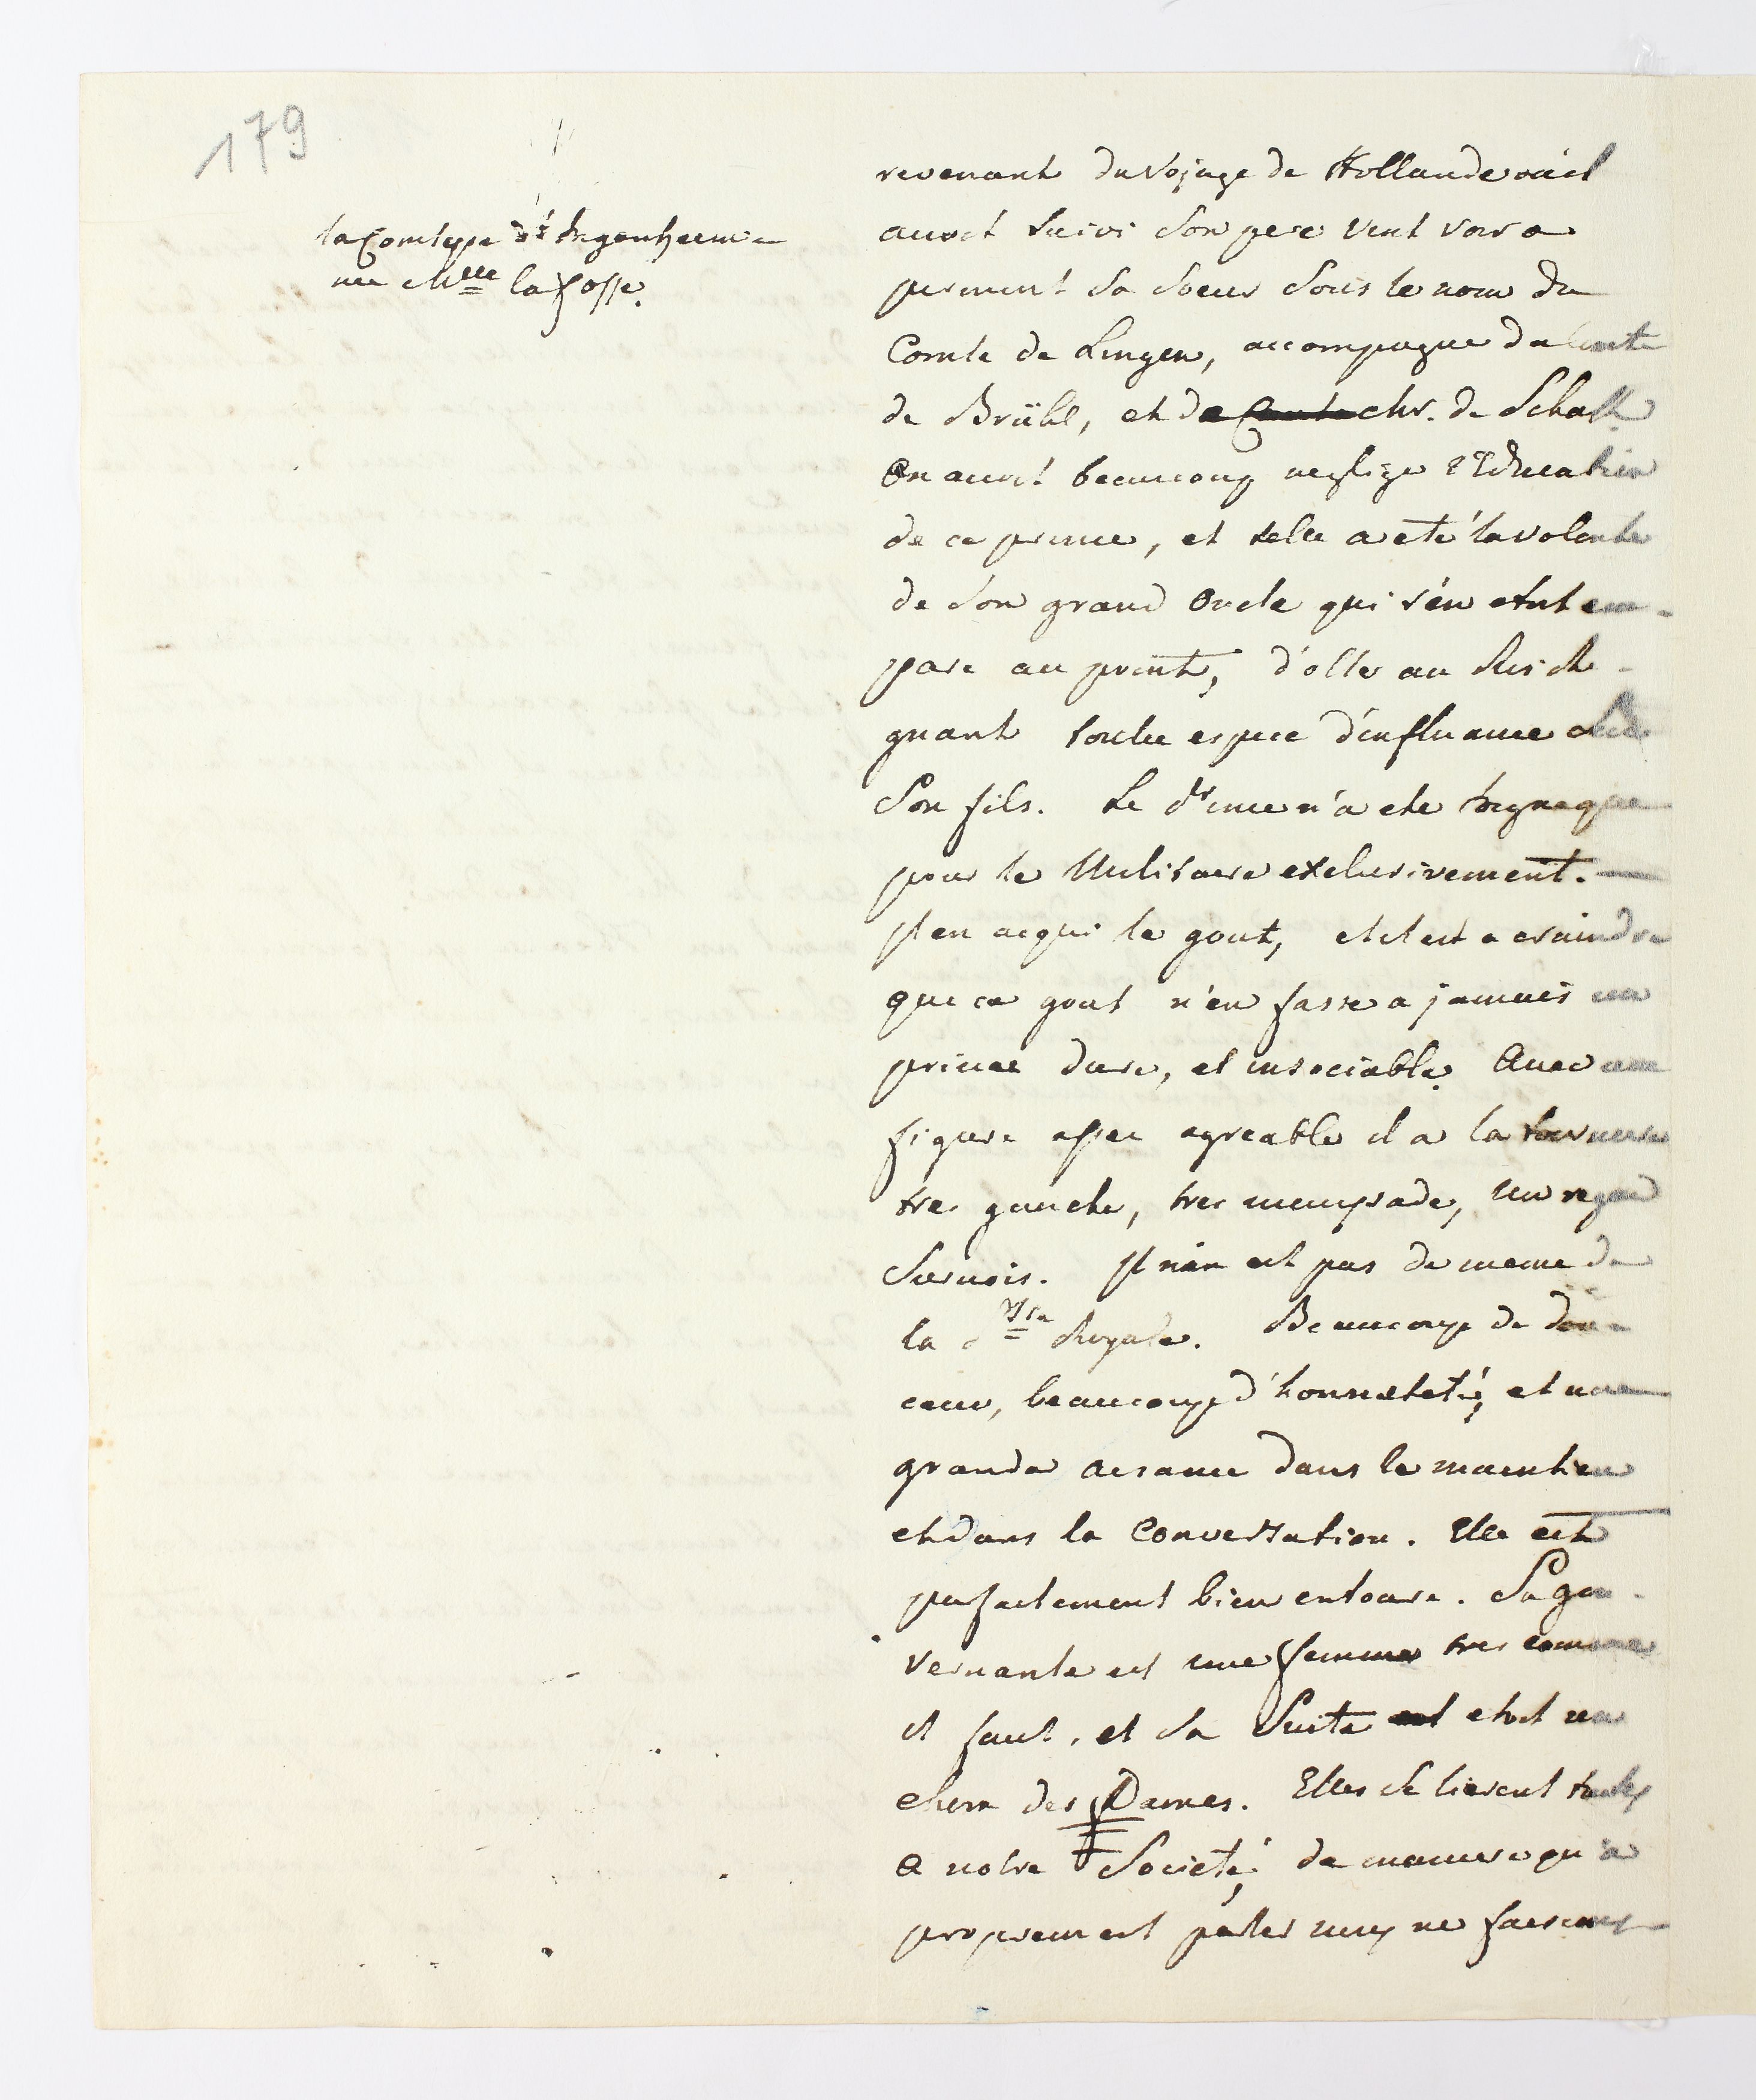 179
la Comtesse d'Ingenheim
née Mlle la fosse.
revenant du vojage de Hollande où il
avoit suivi son pere vint voir a
pirmont sa soeur sous le nom du
Comte de Lingen, accompagne du comte
de Brühl, et de Comte chr. de Schack
On avoit beaucoup neglige l'Education
de ce prince, et telle a eté la volonte
de son grand oncle qui s'en etoit em-
pare au point, d'olter au
toutte espece d'influance
son fils. Le Prince n'a ete que
pour le Militaire exclusivement.
Il en acqui le gout, et il est a craindre
que ce gout n'en fasse a jamais un
prince dure, et insociable. Avec une
figure assee agreable il a la tournure
tres gauche, tres maupsade, un regard
surnois. Il n'en est pas de meme de
la Psse Royale. Beaucoup de dou-
ceur, beaucoup d'honnetteté, et une
grande aisance dans le maintien
et dans la Conversation. Elle est
parfaitement bien entoure. Sa gou-
vernante est une femme tres comme
il faut, et sa suite est etoit un
choix des Dames. Elles se lierent touttes
a notre Societé, de maniere qu'a
proprement parler nous ne faisions